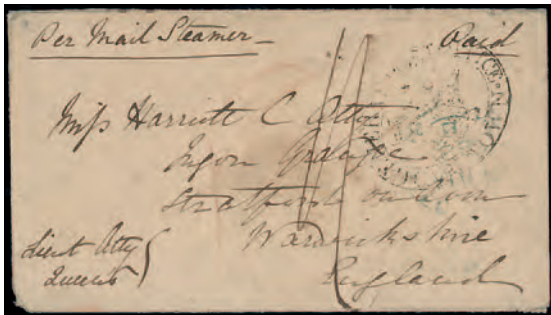 Per Mail Steamer
Paid
Miss Harriett C Atty
Ingon Grange
Stratford on Avon
Warwickshire
England
Lieut Atty
Queens